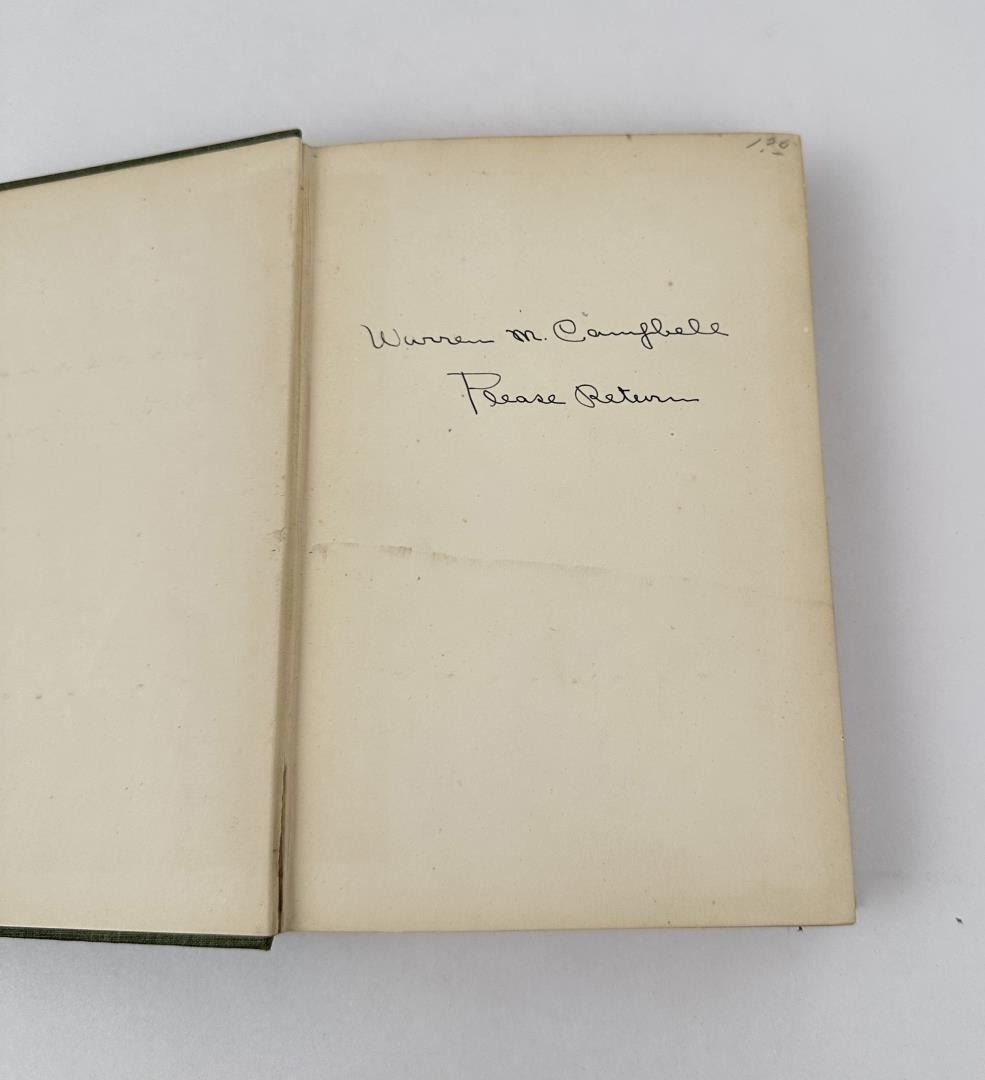 Warren M. Campbell
Please Return